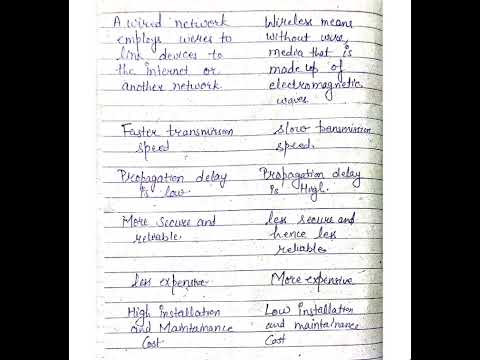 A wired network
employs wires to
link devices to
the internet or
another network
Wireless means
without wire,
media that is
made up of
electromagnetic
waves
Faster transmission
speed
slow transmission
speed.
Propagation delay
is low
Propagation delay
is High.
More Secure and
reliable.
less secure and
hence less
reliable
less expensive
More expensive
High Installation
and Maintainance
Cost
Low installation
and maintainance
Cost